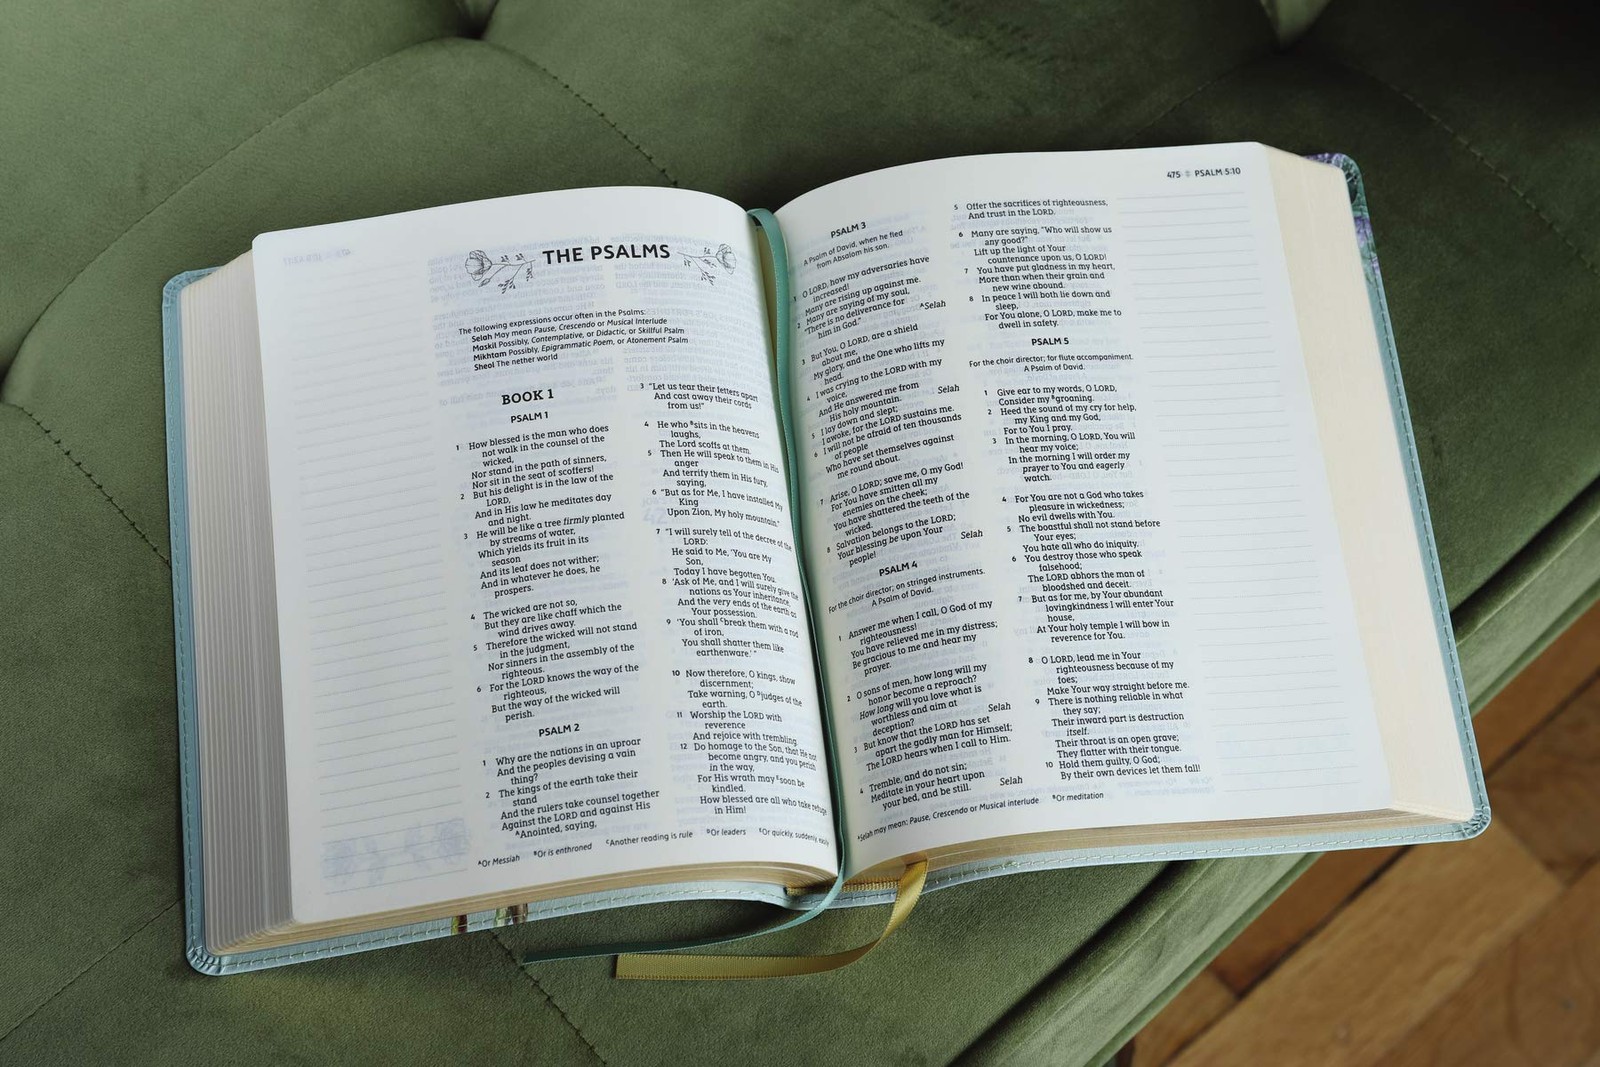 THE PSALMS
The following expressions occur often in the Psalms:
Selah May mean Pause, Crescendo or Musical Interlude
Maskil Possibly, Contemplative, or Didactic, or Skillful Psalm
Mikhtam Possibly, Epigrammatic Poem, or Atonement Psalm
Sheol The nether world
BOOK 1
PSALM 1
1 How blessed is the man who does
not walk in the counsel of the
wicked,
Nor stand in the path of sinners,
Nor sit in the seat of scoffers!
2 But his delight is in the law of the
LORD,
And in His law he meditates day
and night.
3 He will be like a tree firmly planted
by streams of water,
Which yields its fruit in its
season
And its leaf does not wither;
And in whatever he does, he
prospers.
4 The wicked are not so,
But they are like chaff which the
wind drives away.
5 Therefore the wicked will not stand
in the judgment,
Nor sinners in the assembly of the
righteous.
6 For the LORD knows the way of the
righteous,
But the way of the wicked will
perish.
PSALM 2
1 Why are the nations in an uproar
And the peoples devising a vain
thing?
2 The kings of the earth take their
stand
And the rulers take counsel together
Against the LORD and against His
AAnointed, saying,
3 "Let us tear their fetters apart
And cast away their cords
from us!"
4 He who Bsits in the heavens
laughs,
The Lord scoffs at them.
5 Then He will speak to them in His
anger
And terrify them in His fury,
saying,
6 "But as for Me, I have installed My
King
Upon Zion, My holy mountain."
7 "I will surely tell of the decree of the
LORD:
He said to Me, 'You are My
Son,
Today I have begotten You.
8 'Ask of Me, and I will surely give the
nations as Your inheritance,
And the very ends of the earth as
Your possession.
9 'You shall Cbreak them with a rod
of iron,
You shall shatter them like
earthenware.'"
10 Now therefore, O kings, show
discernment;
Take warning, O Djudges of the
earth.
11 Worship the LORD with
reverence
And rejoice with trembling.
12 Do homage to the Son, that He not
become angry, and you perish
in the way,
For His wrath may Esoon be
kindled.
How blessed are all who take refuge
in Him!
AOr Messiah BOr is enthroned CAnother reading is rule DOr leaders EOr quickly, suddenly, easily
475 PSALM 5:10
PSALM 3
A Psalm of David, when he fled
from Absalom his son.
1 O LORD, how my adversaries have
increased!
Many are rising up against me.
2 Many are saying of my soul,
"There is no deliverance for
him in God." ASelah
3 But You, O LORD, are a shield
about me,
My glory, and the One who lifts my
head.
4 I was crying to the LORD with my
voice,
And He answered me from
His holy mountain. Selah
5 I lay down and slept;
I awoke, for the LORD sustains me.
6 I will not be afraid of ten thousands
of people
Who have set themselves against
me round about.
7 Arise, O LORD; save me, O my God!
For You have smitten all my
enemies on the cheek;
You have shattered the teeth of the
wicked.
8 Salvation belongs to the LORD;
Your blessing be upon Your
people! Selah
PSALM 4
For the choir director; on stringed instruments.
A Psalm of David.
1 Answer me when I call, O God of my
righteousness!
You have relieved me in my distress;
Be gracious to me and hear my
prayer.
2 O sons of men, how long will my
honor become a reproach?
How long will you love what is
worthless and aim at
deception? Selah
3 But know that the LORD has set
apart the godly man for Himself;
The LORD hears when I call to Him.
4 Tremble, and do not sin;
Meditate in your heart upon
your bed, and be still. Selah
5 Offer the sacrifices of righteousness,
And trust in the LORD.
6 Many are saying, "Who will show us
any good?"
Lift up the light of Your
countenance upon us, O LORD!
7 You have put gladness in my heart,
More than when their grain and
new wine abound.
8 In peace I will both lie down and
sleep,
For You alone, O LORD, make me to
dwell in safety.
PSALM 5
For the choir director; for flute accompaniment.
A Psalm of David.
1 Give ear to my words, O LORD,
Consider my Bgroaning.
2 Heed the sound of my cry for help,
my King and my God,
For to You I pray.
3 In the morning, O LORD, You will
hear my voice;
In the morning I will order my
prayer to You and eagerly
watch.
4 For You are not a God who takes
pleasure in wickedness;
No evil dwells with You.
5 The boastful shall not stand before
Your eyes;
You hate all who do iniquity.
6 You destroy those who speak
falsehood;
The LORD abhors the man of
bloodshed and deceit.
7 But as for me, by Your abundant
lovingkindness I will enter Your
house,
At Your holy temple I will bow in
reverence for You.
8 O LORD, lead me in Your
righteousness because of my
foes;
Make Your way straight before me.
9 There is nothing reliable in what
they say;
Their inward part is destruction
itself.
Their throat is an open grave;
They flatter with their tongue.
10 Hold them guilty, O God;
By their own devices let them fall!
ASelah may mean: Pause, Crescendo or Musical interlude BOr meditation